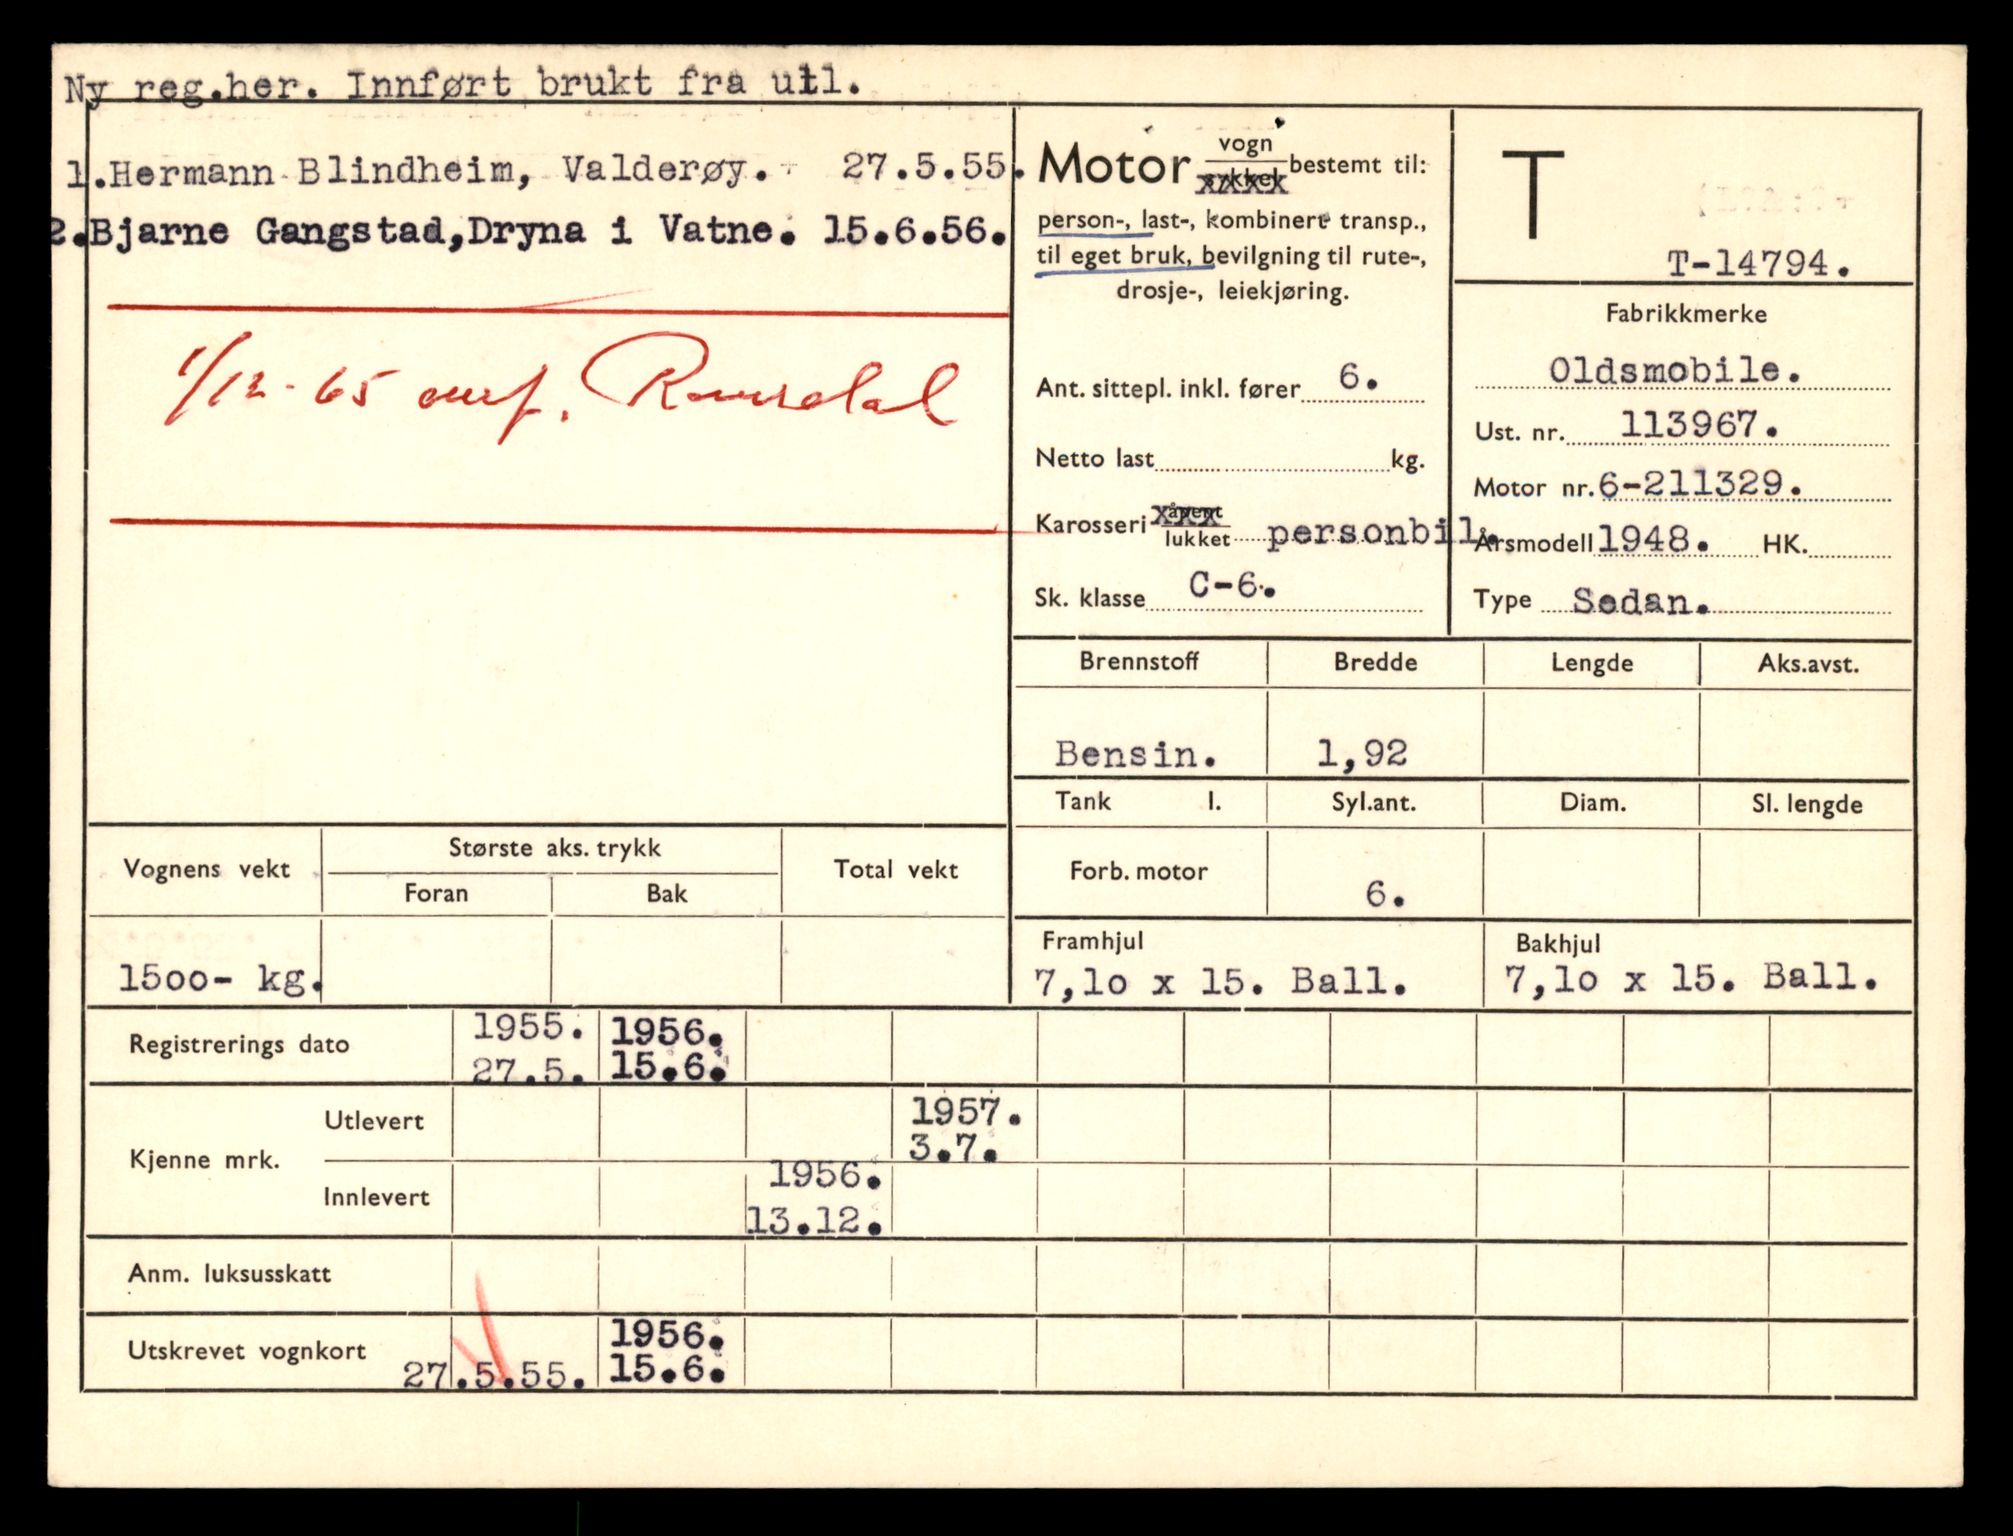 Ny reg.her. Innført brukt fra utl.
1.Hermann Blindheim, Valderøy. 27.5.55.
2.Bjarne Gangstad,Dryna i Vatne. 15.6.56.
1/12-65 Romsdal
Motor vogn bestemt til:
person-, last-, kombinert transp.,
til eget bruk, bevilgning til rute-,
drosje-, leiekjøring.
Ant. sittepl. inkl. fører 6.
Netto last kg.
Karosseri åpent
lukket personbil.
Sk. klasse C-6.
T
T-14794.
Fabrikkmerke
Oldsmobile.
Ust. nr. 113967.
Motor nr. 6-211329.
Årsmodell 1948. HK.
Type Sedan.
Brennstoff Bredde Lengde Aks.avst.
Bensin. 1,92
Tank l. Syl.ant. Diam. Sl. lengde
Forb. motor 6.
Framhjul Bakhjul
7,1o x 15. Ball. 7,1o x 15. Ball.
Vognens vekt Største aks. trykk Total vekt
Foran Bak
15oo- kg.
Registrerings dato 1955. 1956.
27.5. 15.6.
Kjenne mrk. Utlevert 1957.
3.7.
Innlevert 1956.
13.12.
Anm. luksusskatt
Utskrevet vognkort 1956.
27.5.55. 15.6.